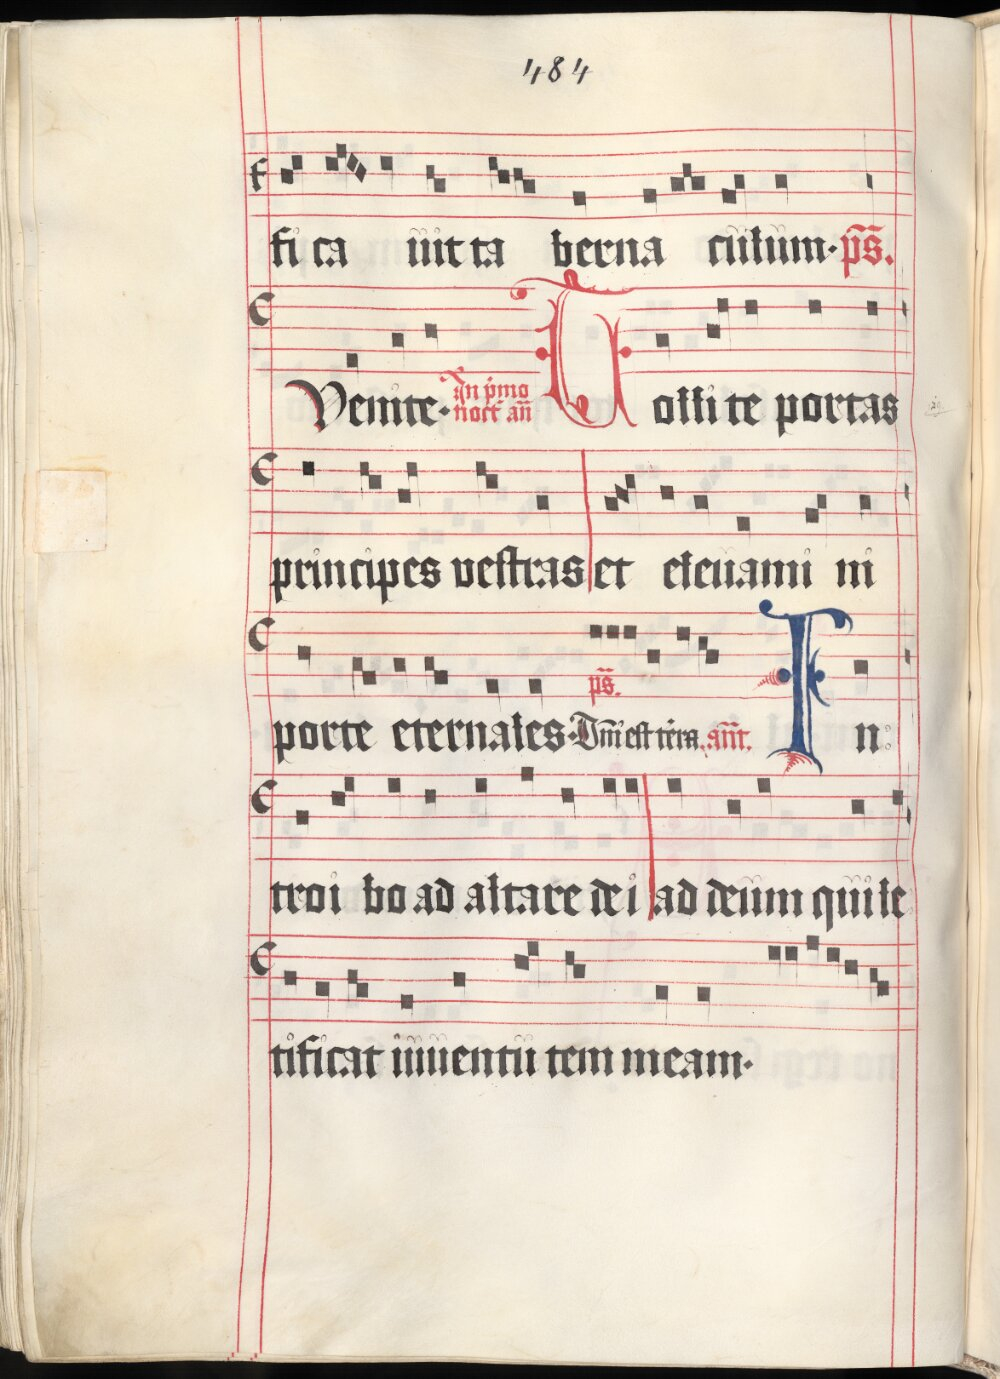 484
fi ca uit ta berna culum. ps̄.
Venite. In p̄mo noct̄ an̄ Tollite portas
principes vestras et eleuami ni
porte eternales. Dn̄i est terra. ps̄. ant̄. In
troi bo ad altare dei ad deum qui le
tificat iuuentu tem meam.